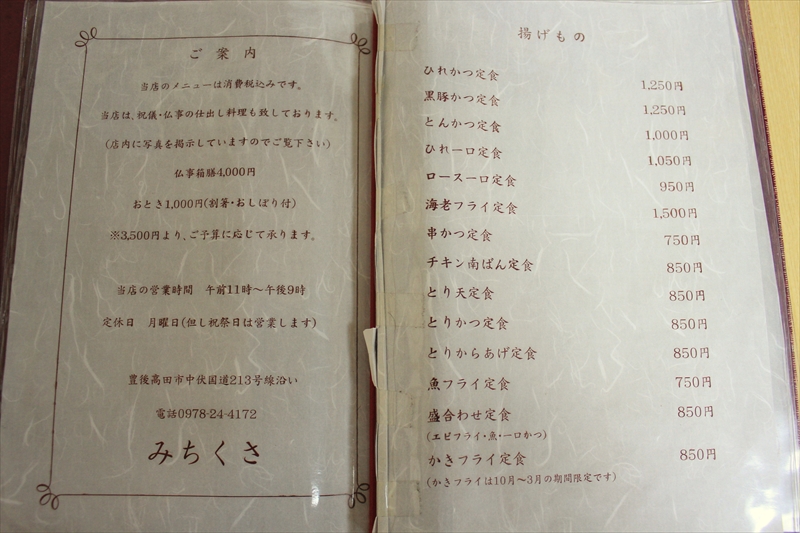 ご案内
当店のメニューは消費税込みです。
当店は、祝儀・仏事の仕出し料理も致しております。
(店内に写真を掲示していますのでご覧下さい)
仏事箱膳4,000円
おとき1,000円(割箸・おしぼり付)
※3,500円より、ご予算に応じて承ります。
当店の営業時間 午前11時〜午後9時
定休日 月曜日(但し祝祭日は営業します)
豊後高田市中伏国道213号線沿い
電話0978-24-4172
みちくさ
揚げもの
ひれかつ定食 1,250円
黒豚かつ定食 1,250円
とんかつ定食 1,000円
ひれ一口定食 1,050円
ロース一口定食 950円
海老フライ定食 1,500円
串かつ定食 750円
チキン南ばん定食 850円
とり天定食 850円
とりかつ定食 850円
とりからあげ定食 850円
魚フライ定食 750円
盛合わせ定食 850円
(エビフライ・魚・一口かつ)
かきフライ定食 850円
(かきフライは10月〜3月の期間限定です)